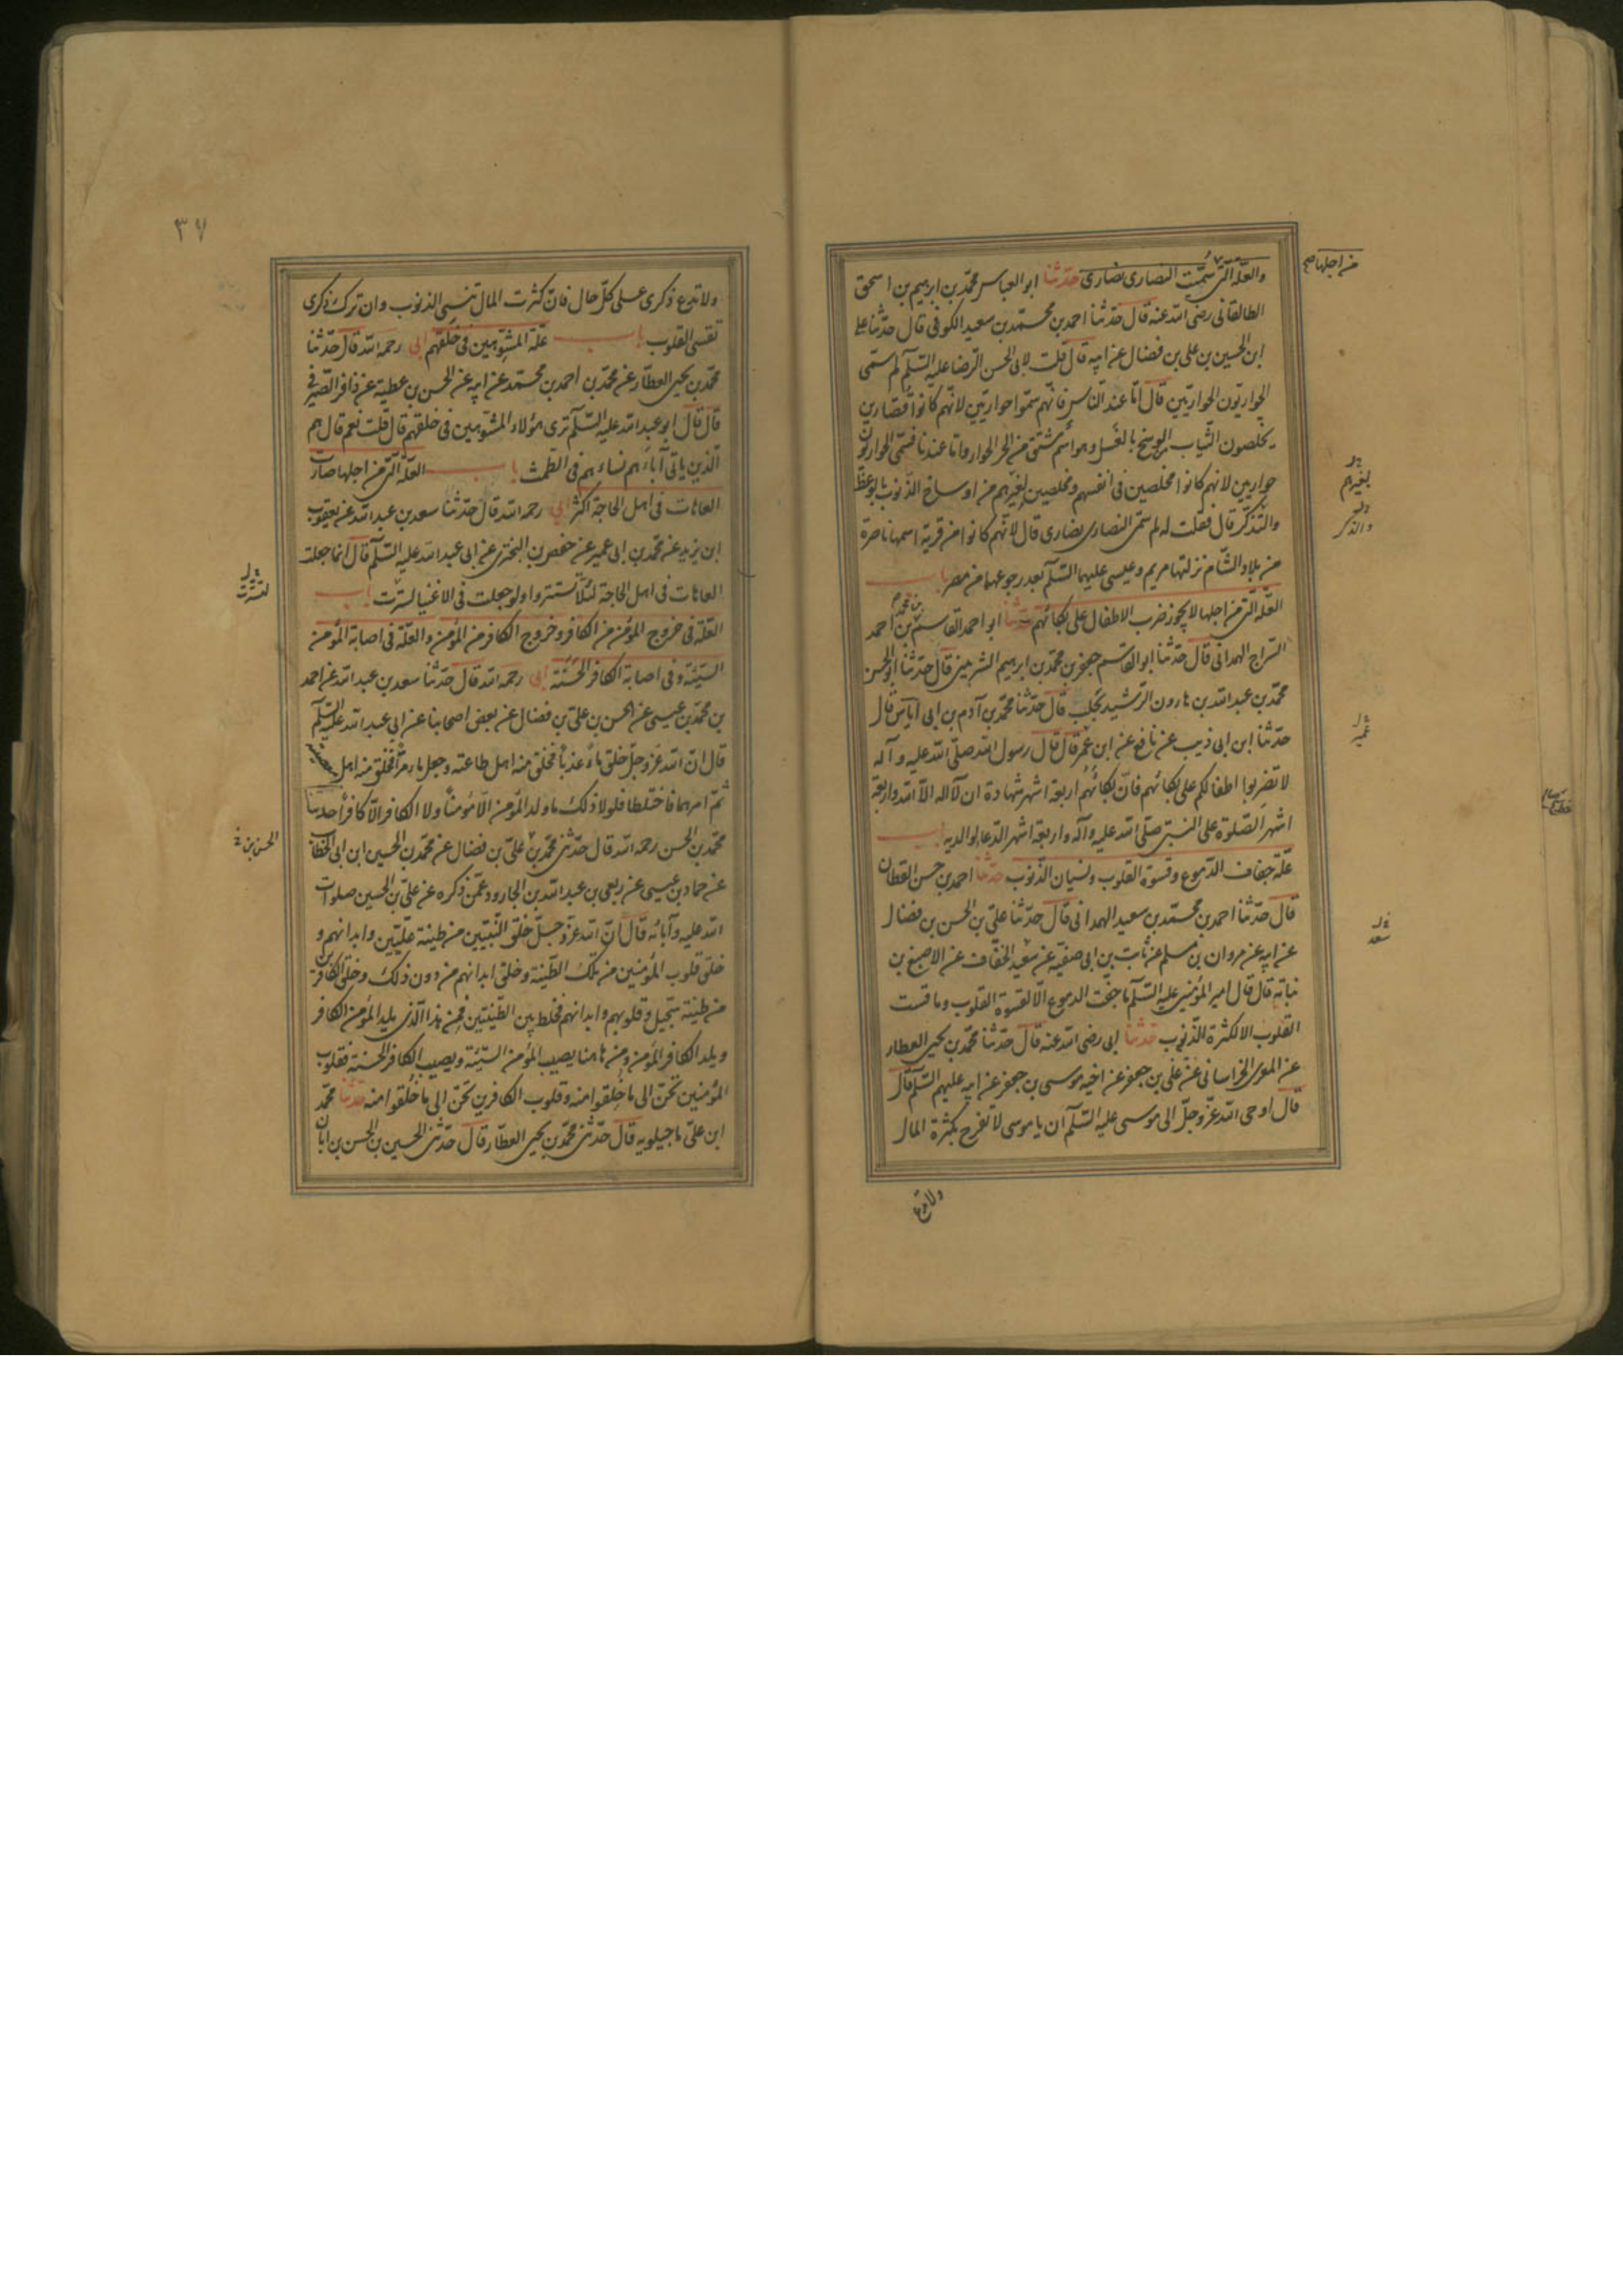 والعلة التي سميت النصارى نصارى حدثنا ابو العباس محمد بن ابرهيم بن اسحق
من اجلها صح
الطالقاني رضى الله عنه قال حدثنا احمد بن محمد بن سعيد الكوفى قال حدثنا على
ابن الحسين بن على بن فضال عن ابيه قال قلت لابى الحسن الرضا عليه السلم لم سمى
الحواريون الحواريين قال اما عند الناس فانهم سموا حواريين لانهم كانوا قصارين
يخلصون الثياب من الوسخ بالغسل وهو اسم مشتق من الخبز الحوار واما عندنا فسمى الحواريون
حواريين لانهم كانوا مخلصين فى انفسهم ومخلصين لغيرهم من اوساخ الذنوب بالوعظ
لغيرهم
والتذكر قال فقلت له لم سمى النصارى نصارى قال لانهم كانوا من قرية اسمها ناصرة
والذكر
من بلاد الشام نزلتها مريم وعيسى عليهما السلم بعد رجوعهما من مصر باب
العلة التى من اجلها لا يجوز ضرب الاطفال على بكائهم حدثنا ابو احمد القاسم بن محمد بن احمد
السراج الهمدانى قال حدثنا ابو القاسم جعفر بن محمد بن ابرهيم قال حدثنا ابو الحسن
محمد بن عبد الله بن هارون الرشيد بحلب قال حدثنا محمد بن آدم بن ابى اياس قال
حدثنا ابن ابى ذيب عن نافع عن ابن عمر قال قال رسول الله صلى الله عليه وآله
لا تضربوا اطفالكم على بكائهم فان بكائهم اربعة اشهر شهادة ان لا اله الا الله واربعة
اشهر الصلوة على النبى صلى الله عليه وآله واربعة اشهر الدعا لوالديه باب
علة جفاف الدموع وقسوة القلوب ونسيان الذنوب حدثنا احمد بن حسن القطان
قال حدثنا احمد بن محمد بن سعيد الهمدانى قال حدثنا على بن الحسن بن فضال
عن ابيه عن مروان بن مسلم عن ثابت بن ابى صفية عن سعيد الخفاف عن الاصبغ بن
سعد
نباته قال قال امير المؤمنين عليه السلم ما جفت الدموع الا لقسوة القلوب وما قست
القلوب الا لكثرة الذنوب حدثنا ابى رضى الله عنه قال حدثنا محمد بن يحيى العطار
عن الخراسانى عن على بن جعفر عن اخيه موسى بن جعفر عن ابيه عليهم السلم قال
قال اوحى الله عز وجل الى موسى عليه السلم ان يا موسى لا تفرح بكثرة المال
ولا تدع
٣٧
ولا تدع ذكرى على كل حال فان كثرت المال تنسى الذنوب وان ترك ذكرى
تقسى القلوب باب علة المشوهين فى خلقهم ابى رحمه الله قال حدثنا
محمد بن يحيى العطار عن محمد بن احمد بن محمد عن ابيه عن الحسن بن عطية عن ذافر الصيرفى
قال قال ابو عبد الله عليه السلم ترى هؤلاء المشوهين فى خلقهم قال قلت نعم قال هم
الذين ياتى آباءهم نساءهم فى الطمث باب العلة التى من اجلها صارت
العاهات فى اهل الحاجة اكثر ابى رحمه الله قال حدثنا سعد بن عبد الله عن يعقوب
ابن يزيد عن محمد بن ابى عمير عن حفص بن البخترى عن ابى عبد الله عليه السلم قال انما جعلت
العاهات فى اهل الحاجة لئلا تستتروا ولو جعلت فى الاغنيا لسترت باب
لتسترت
العلة فى خروج المؤمن من الكافر وخروج الكافر من المؤمن والعلة فى اصابة المؤمن
السيئة وفى اصابة الكافر الحسنة ابى رحمه الله قال حدثنا سعد بن عبد الله عن احمد
بن محمد بن عيسى عن الحسن بن على بن فضال عن بعض اصحابنا عن ابى عبد الله عليه السلم
قال ان الله عز وجل خلق ماء عذبا فخلق منه اهل طاعته وجعل ماء مرا فخلق منه اهل معصيته
ثم امرهما فاختلطا فلولا ذلك ما ولد المؤمن الا مؤمنا ولا الكافر الا كافرا حدثنا
محمد بن الحسن رحمه الله قال حدثنى محمد بن على بن فضال عن محمد بن الحسين ابن ابى الخطاب
الحسن بن
عن حماد بن عيسى عن ربعى بن عبد الله بن الجارود عمن ذكره عن على بن الحسين صلوات
الله عليه وآبائه قال ان الله عز وجل خلق النبيين من طينة عليين وابدانهم و
خلق قلوب المؤمنين من تلك الطينة وخلق ابدانهم من دون ذلك وخلق الكافرين
من طينة سجيل وقلوبهم وابدانهم فخلط بين الطينتين فمن هذا الذى يلد المؤمن الكافر
ويلد الكافر المؤمن ومن هاهنا يصيب المؤمن السيئة ويصيب الكافر الحسنة فقلوب
المؤمنين تحن الى ما خلقوا منه وقلوب الكافرين تحن الى ما خلقوا منه حدثنا محمد
ابن على ماجيلويه قال حدثنى محمد بن يحيى العطار قال حدثنى الحسين بن الحسن بن ابان